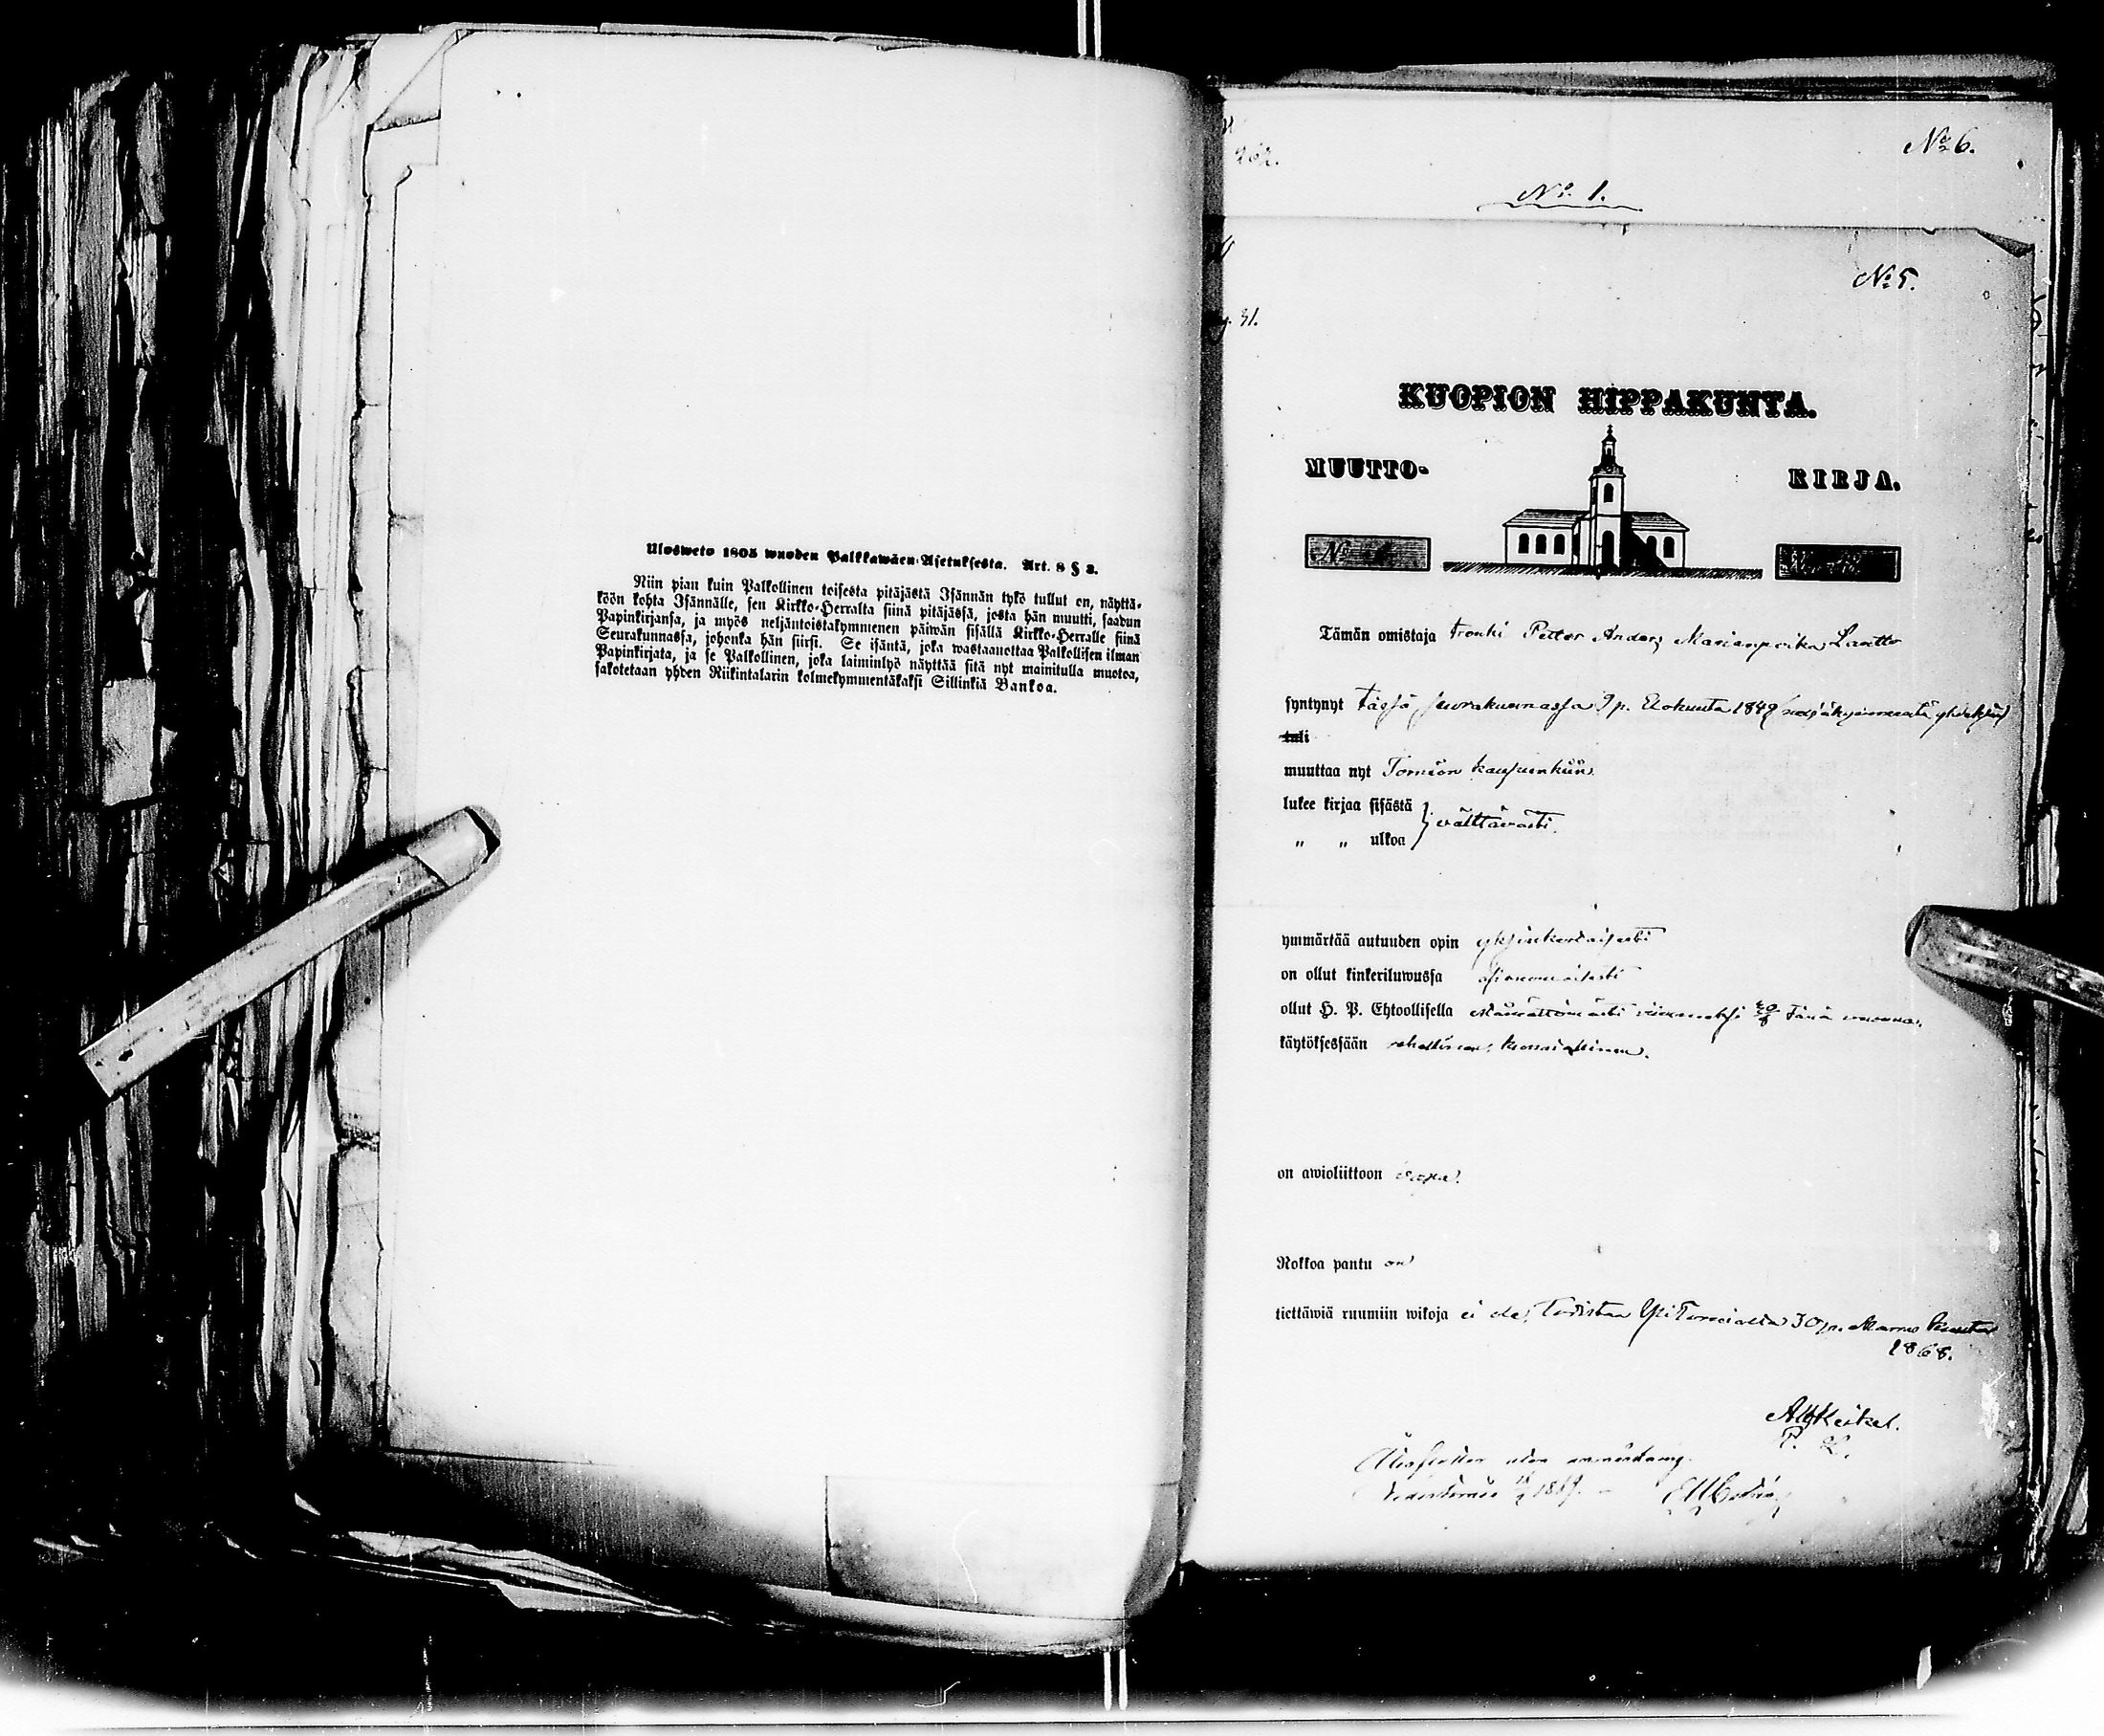 Ulosweto 1805 wuoden Palkkawäen-Asetuksesta. Art. 8 § 3.
Niin pian kuin Palkollinen toisesta pitäjästä Isännän tykö tullut on, näyttä-
köön kohta Isännälle, sen Kirkko-Herralta siinä pitäjässä, josta hän muutti, saadun
Papinkirjansa, ja myös neljäntoistakymmenen päiwän sisällä Kirkko-Herralle siinä
Seurakunnassa, johonka hän siirsi. Se isäntä, joka wastaanottaa Palkollisen ilman
Papinkirjata, ja se Palkollinen, joka laiminlyö näyttää sitä nyt mainitulla muotoa,
sakotetaan yhden Riikintalarin kolmekymmentäkaksi Sillinkiä Bankoa.
No 6.
No 1.
No 5.
31.
KUOPION HIPPAKUNTA.
MUUTTO- KIRJA.
No
Tämän omistaja Petter Anders Lantto
syntynyt tässä seurakunnassa 9 p. Elokuuta 1849
tuli
muuttaa nyt Tornion kaupunkiin
lukee kirjaa sisästä
" " ulkoa } välttävästi.
ymmärtää autuuden opin yksinkertaisesti
on ollut kinkeriluwussa
ollut H. P. Ehtoollisella viimeiseksi tänä vuonna.
käytöksessään rehellinen, kunniallinen.
on awioliittoon vapa.
Rokkoa pantu on
tiettäwiä ruumiin wikoja ei ole, Todistaa YliTorniolla 30 p. Marras kuuta
1868.
Alf Heikel.
P. L.